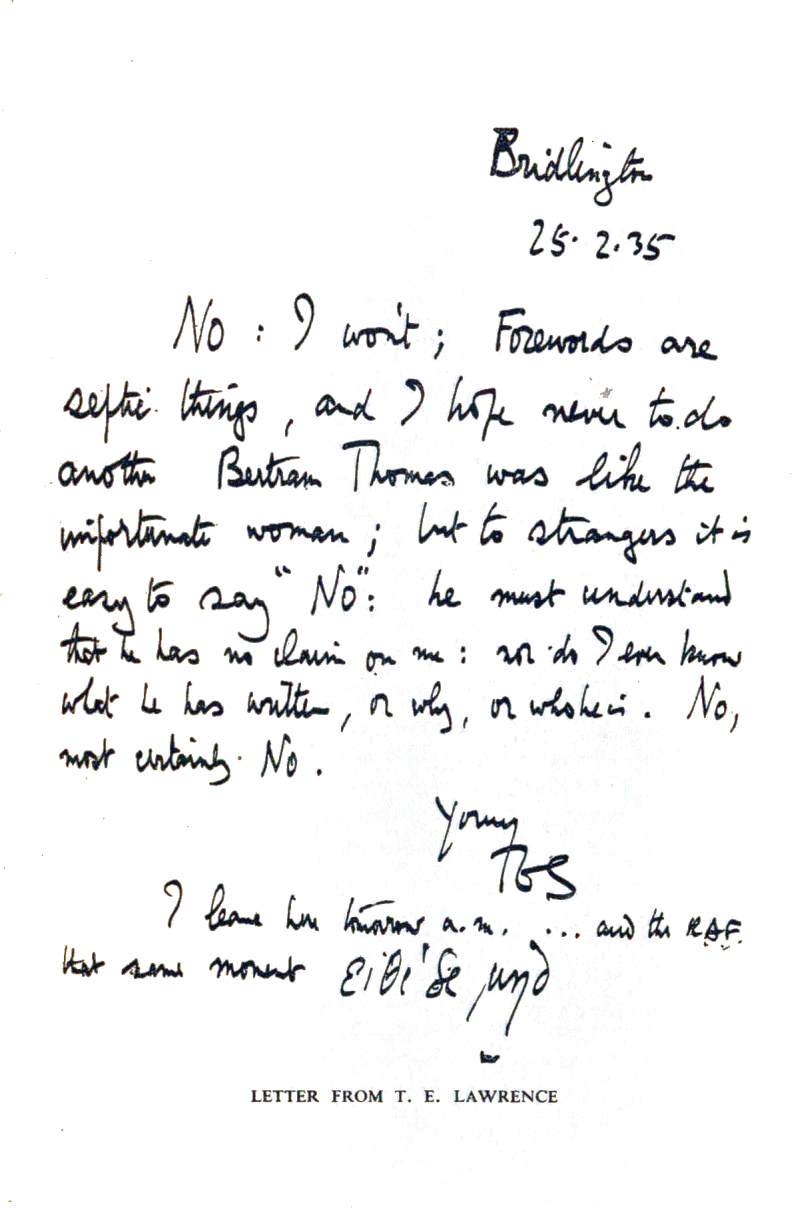 Bridlington
25. 2. 35
No : I won't ; Forewords are
septic things , and I hope never to do
another Bertram Thomas was like the
importunate woman ; but to strangers it is
easy to say "No": he must understand
that he has no claim on me : nor do I even know
what he has written , or why , or who he is . No,
most certainly No .
Yours
TES
I leave here tomorrow a.m. ... and the RAF
that same moment εἴθε δὲ μηδ
LETTER FROM T. E. LAWRENCE